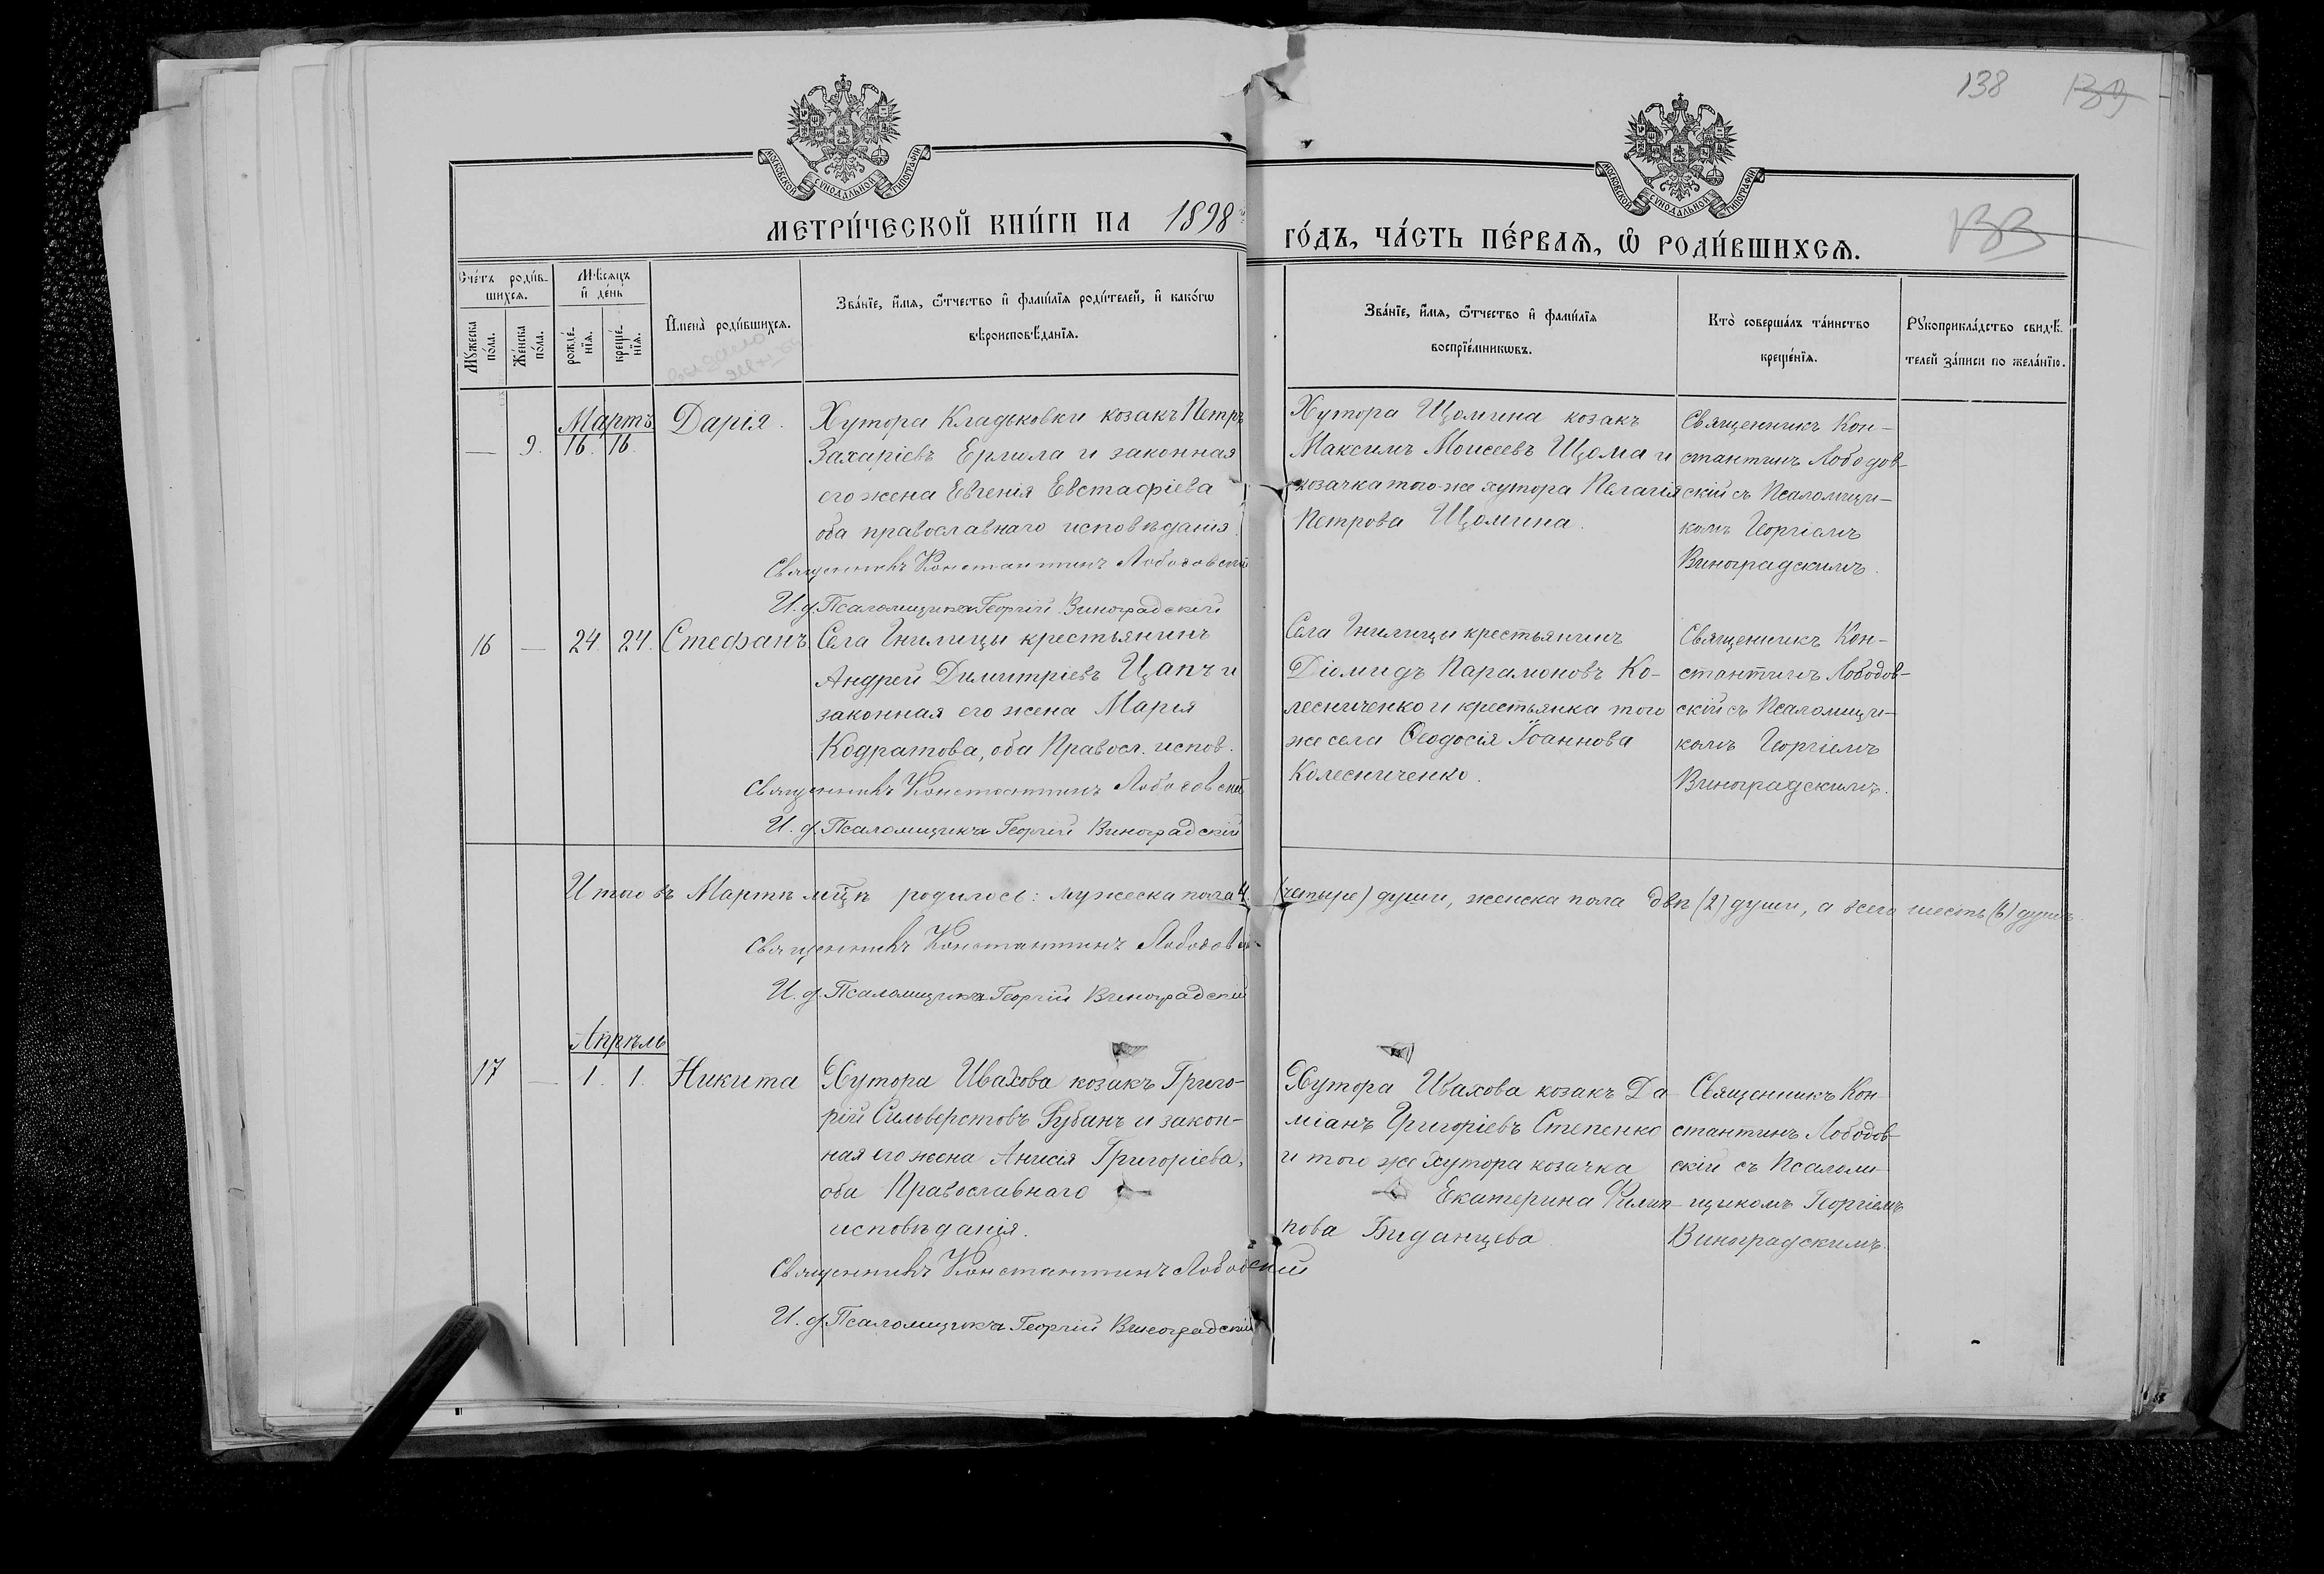 138 139
МОСКОВСКОЙ СѴНОДАЛЬНОЙ ТИПОГРАФІИ
МОСКОВСКОЙ СѴНОДАЛЬНОЙ ТИПОГРАФІИ
МЕТРИ́ЧЕСКОЙ КНИ́ГИ НА 1898 й
ГО́ДЪ, ЧА́СТЬ ПЕ́РВАѦ, Ѡ҆ РОДИ́ВШИХСѦ.
Сче́тъ роди́в-
шихсѧ.
Мѣ́сѧцъ
и҆ де́нь
Мꙋ́жеска
по́ла.
Же́нска
по́ла.
рожде́-
нїѧ.
креще́-
нїѧ.
И҆мена̀ роди́вшихсѧ.
Зва́нїе, и҆́мѧ, ѻ҆́тчество и҆ фами́лїѧ роди́телей, и҆ како́гѡ
вѣроисповѣ́данїѧ.
Зва́нїе, и҆́мѧ, ѻ҆́тчество и҆ фами́лїѧ
воспрїе́мникѡвъ.
Кто̀ соверша́лъ та́инство
креще́нїѧ.
Рꙋкоприкла́дство свидѣ́-
телей за́писи по жела́нїю.
Мартъ
— 9. 16. 16. Дарія.
Хутора Кладковки козакъ Петръ
Захаріевъ Ермила и законная
его жена Евгенія Евстафіева
оба православнаго исповѣданія.
Священникъ Константинъ Лободовскій
И. д. Псаломщика Георгій Виноградскій
Хутора Щомина козакъ
Максимъ Моисеевъ Щома и
козачка того-же хутора Пелагія
Петрова Щомина.
Священникъ Кон-
стантинъ Лободов-
скій съ Псаломщи-
комъ Георгіемъ
Виноградскимъ.
16 — 24. 24. Стефанъ
Села Гнилицы крестьянинъ
Андрей Димитріевъ Цапъ и
законная его жена Марія
Кодратова, оба Правосл. испов.
Священникъ Константинъ Лободовскій
И. д. Псаломщика Георгій Виноградскій
Села Гнилицы крестьянинъ
Діомидъ Парамоновъ Ко-
лесниченко и крестьянка того
же села Ѳеодосія Іоаннова
Колесниченко.
Священникъ Кон-
стантинъ Лободов-
скій съ Псаломщи-
комъ Георгіемъ
Виноградскимъ.
Итого въ Мартѣ мцѣ родилось: мужеска пола 4 (четыре) души, женска пола двѣ (2) души, а всего шесть (6) душъ.
Священникъ Константинъ Лободовскій
И. д. Псаломщика Георгій Виноградскій
Апрѣль
17 — 1. 1. Никита
Хутора Ивахова козакъ Григо-
рій Сильверстовъ Рубанъ и закон-
ная его жена Анисія Григоріева,
оба Православнаго
исповѣданія.
Священникъ Константинъ Лободовскій
И. д. Псаломщика Георгій Виноградскій
Хутора Ивахова козакъ Да-
міанъ Григоріевъ Степенко
и того же хутора козачка
Екатерина Филип-
пова Биданцева
Священникъ Кон-
стантинъ Лободов-
скій съ Псаломи-
щикомъ Георгіемъ
Виноградскимъ.